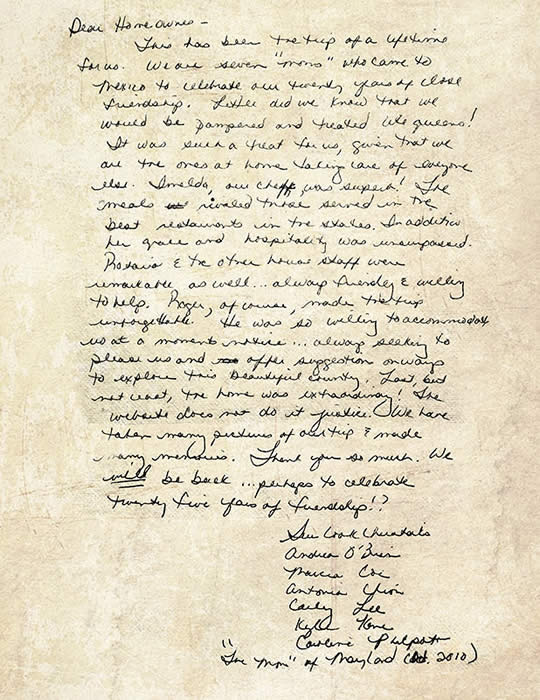 Dear Home owner -
This has been the trip of a lifetime
for us. We are seven "moms" who came to
Mexico to celebrate our twenty years of close
friendship. Little did we know that we
would be pampered and treated like queens!
It was such a treat for us, given that we
are the ones at home taking care of everyone
else. Imelda, our cheff, was superb! The
meals rivaled those served in the
best restaurants in the states. In addition
her grace and hospitality was unsurpassed.
& the other house staff were
remarkable as well... always friendly & willing
to help. Roger, of course, made the trip
unforgettable. He was so willing to accommodate
us at a moment's notice... always seeking to
please us and offer suggestion on ways
to explore this beautiful country. Last, but
not least, the home was extraordinary! The
website does not do it justice. We have
taken many pictures of our trip & made
many memories. Thank you so much. We
will be back ... perhaps to celebrate
twenty five years of friendship!?
Sue
Andrea O'Brien
Marcia
Antonia
Carly Lee
Kylie
Caroline Philpott
"The Moms" of Maryland (Oct. 2010)